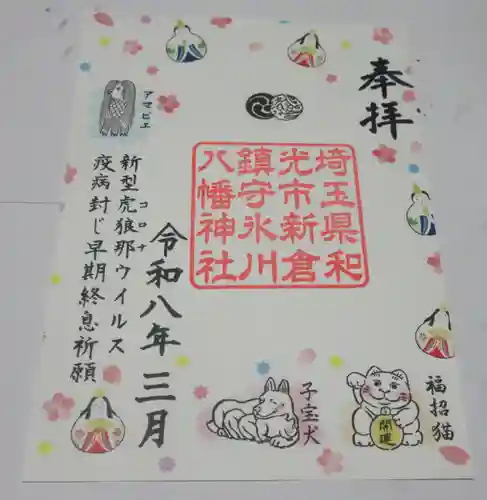 奉拝
埼玉県和
光市新倉
鎮守氷川
八幡神社
アマビエ
新型虎狼那ウイルス
コロナ
疫病封じ早期終息祈願
令和八年三月
子宝犬
福招猫
開運